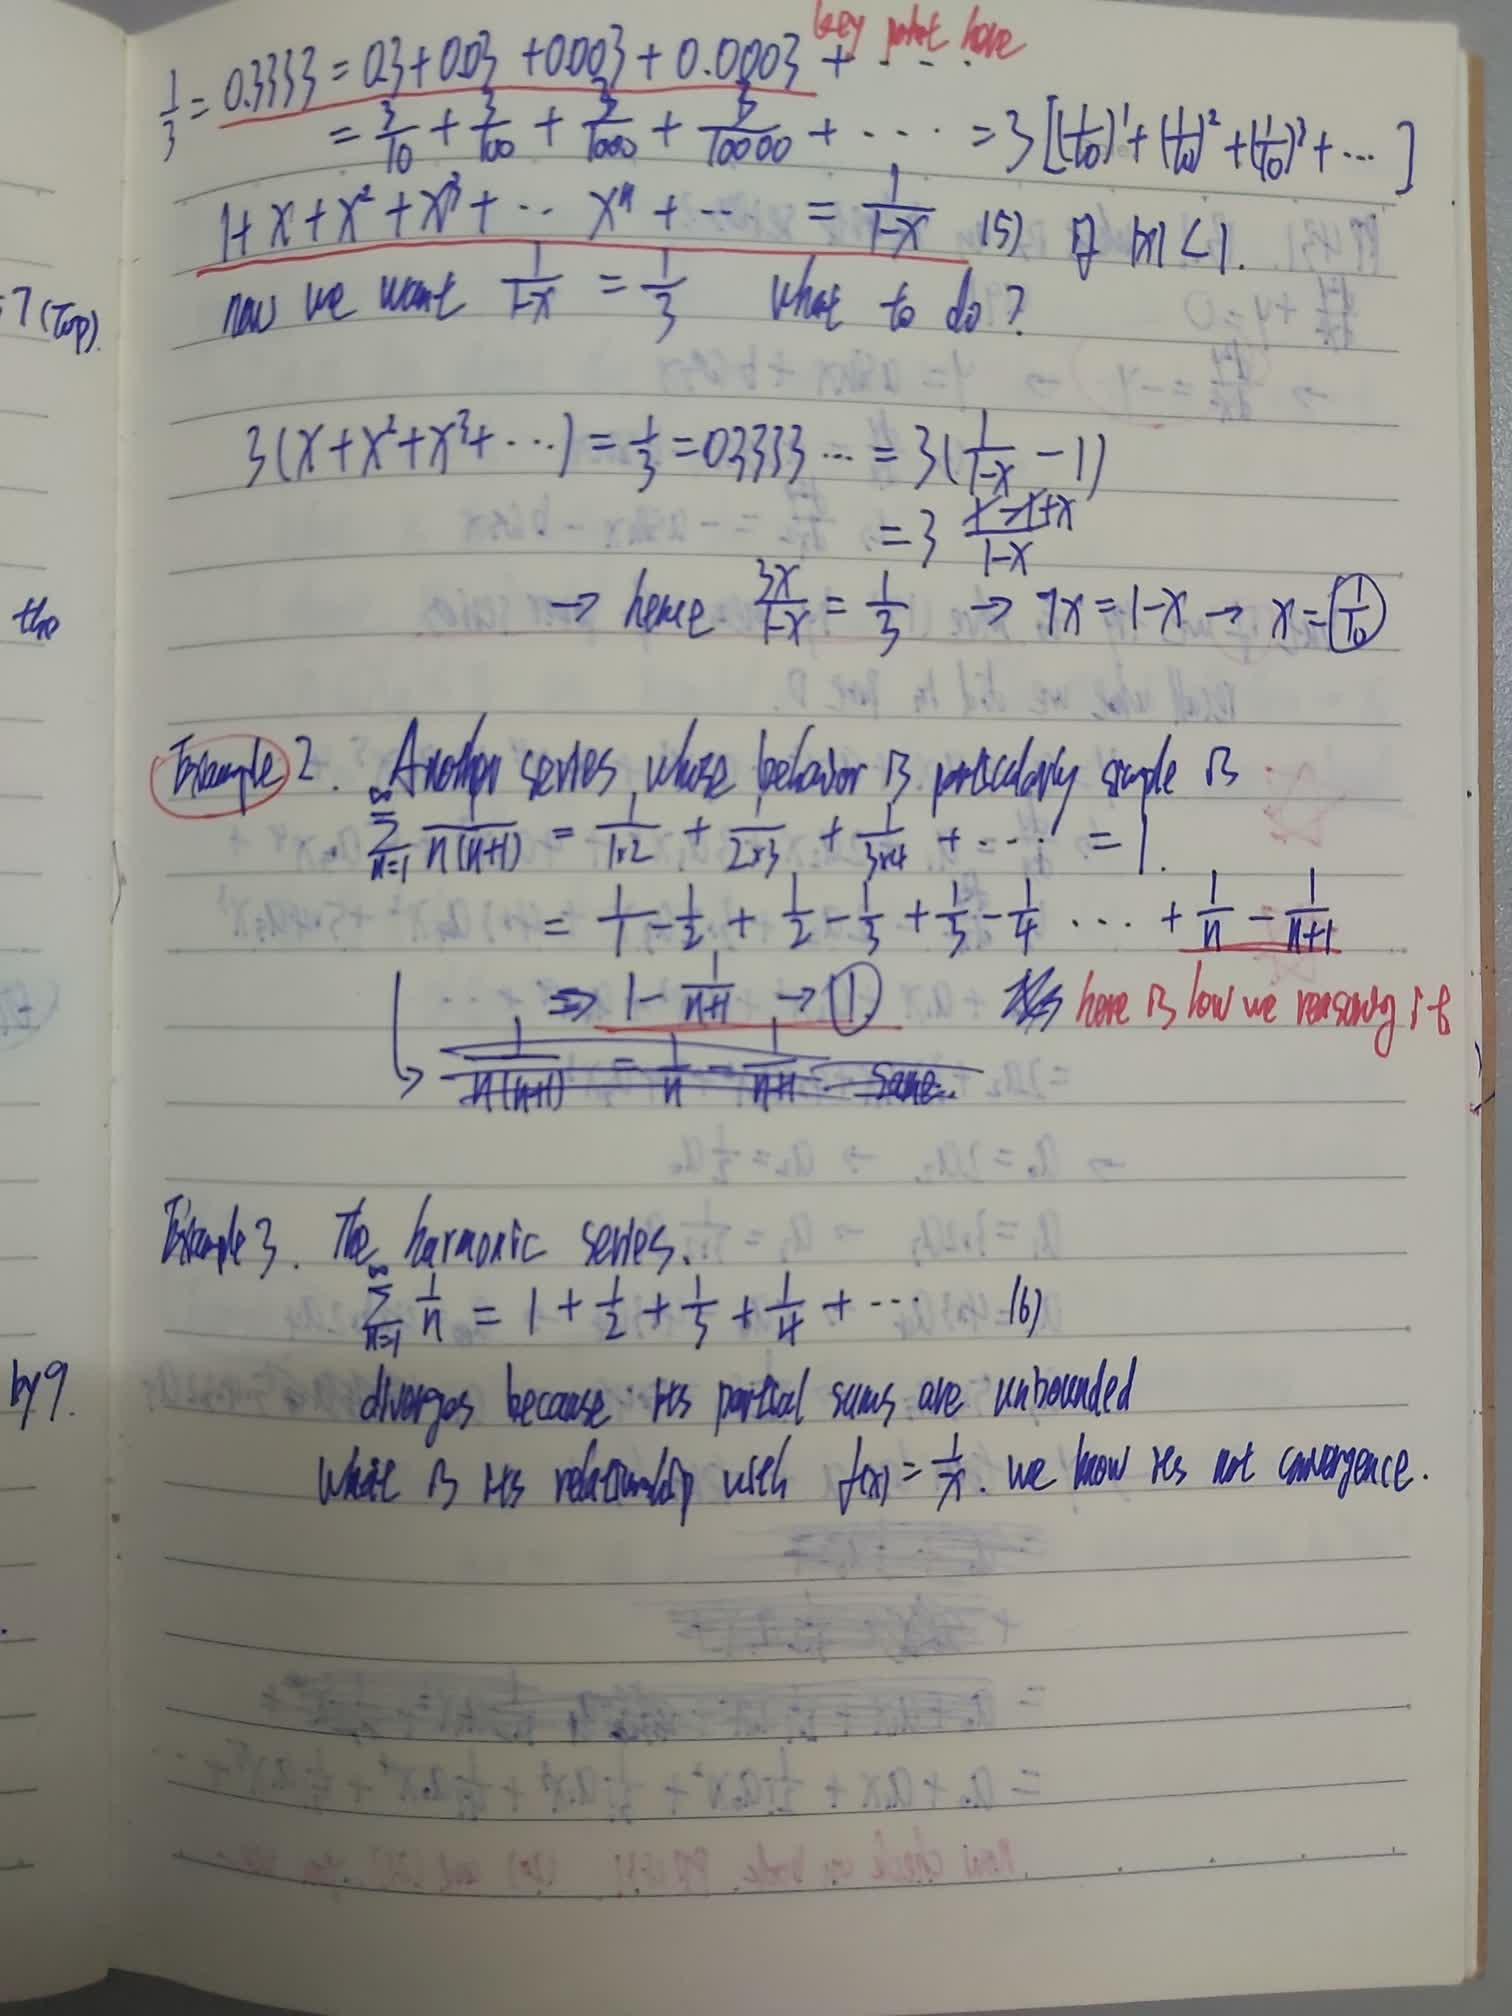 key point here
1/3 = 0.3333 = 0.3 + 0.03 + 0.003 + 0.0003 + ...
= 3/10 + 3/100 + 3/1000 + 3/10000 + ... = 3[(1/10)^1 + (1/10)^2 + (1/10)^3 + ...]
1 + x + x^2 + x^3 + ... x^n + ... = 1/(1-x) (5) if |x| < 1.
now we want 1/(1-x) = 1/3 what to do?
7 (Top).
3(x + x^2 + x^3 + ...) = 1/3 = 0.3333 ... = 3(1/(1-x) - 1)
= 3 (1-1+x)/(1-x)
→ hence 3x/(1-x) = 1/3 → 9x = 1-x → x = 1/10
the
Example 2. Another series whose behavior is particularly simple is
∞∑n=1 1/(n(n+1)) = 1/(1×2) + 1/(2×3) + 1/(3×4) + ... = 1.
= 1/1 - 1/2 + 1/2 - 1/3 + 1/3 - 1/4 ... + 1/n - 1/(n+1)
⇒ 1 - 1/(n+1) → 1 here is how we reasoning it
1/(n(n+1)) = 1/n - 1/(n+1) same.
Example 3. The harmonic series.
∞∑n=1 1/n = 1 + 1/2 + 1/3 + 1/4 + ... (6)
by 9.
diverges because its partial sums are unbounded
what is its relationship with f(x) = 1/x. we know its not convergence.